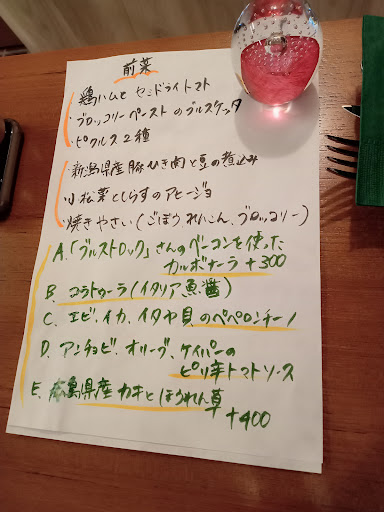 前菜
・鶏ハムと セミドライトマト
・ブロッコリーペーストのブルスケッタ
・ピクルス2種
・新潟県産豚ひき肉と豆の煮込み
・小松菜としらすのアヒージョ
・焼きやさい(ごぼう、れんこん、ブロッコリー)
A.「ブルストロック」さんのベーコンを使った
カルボナーラ +300
B. コラトゥーラ(イタリア魚醤)
C. エビ、イカ、イタヤ貝のペペロンチーノ
D. アンチョビ、オリーブ、ケイパーの
ピリ辛トマトソース
E. 広島県産カキとほうれん草
+400